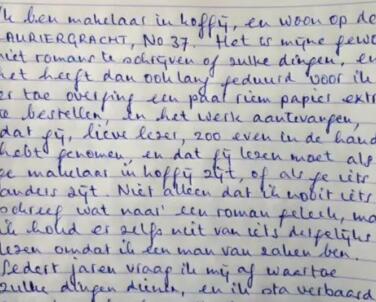 k ben makelaar in koffij, en woon op de
AURIERGRACHT, No 37. Het is mijne gewo
niet romans te schrijven of zulke dingen, en
het heeft dan ook lang geduurd voor ik
er toe overging een paar riem papier extr
te bestellen, en het werk aantevangen,
dat gij, lieve lezer, zoo even in de hand
hebt genomen, en dat gij lezen moet als
ge makelaar in koffij zijt, of als ge iets
anders zijt. Niet alleen dat ik nooit iets
schreef wat naar een roman geleek, ma
ik houd er zelfs niet van iets dergelijks
lezen omdat ik een man van zaken ben.
Sedert jaren vraag ik mij af waartoe
zulke dingen dienen, en ik sta verbaasd